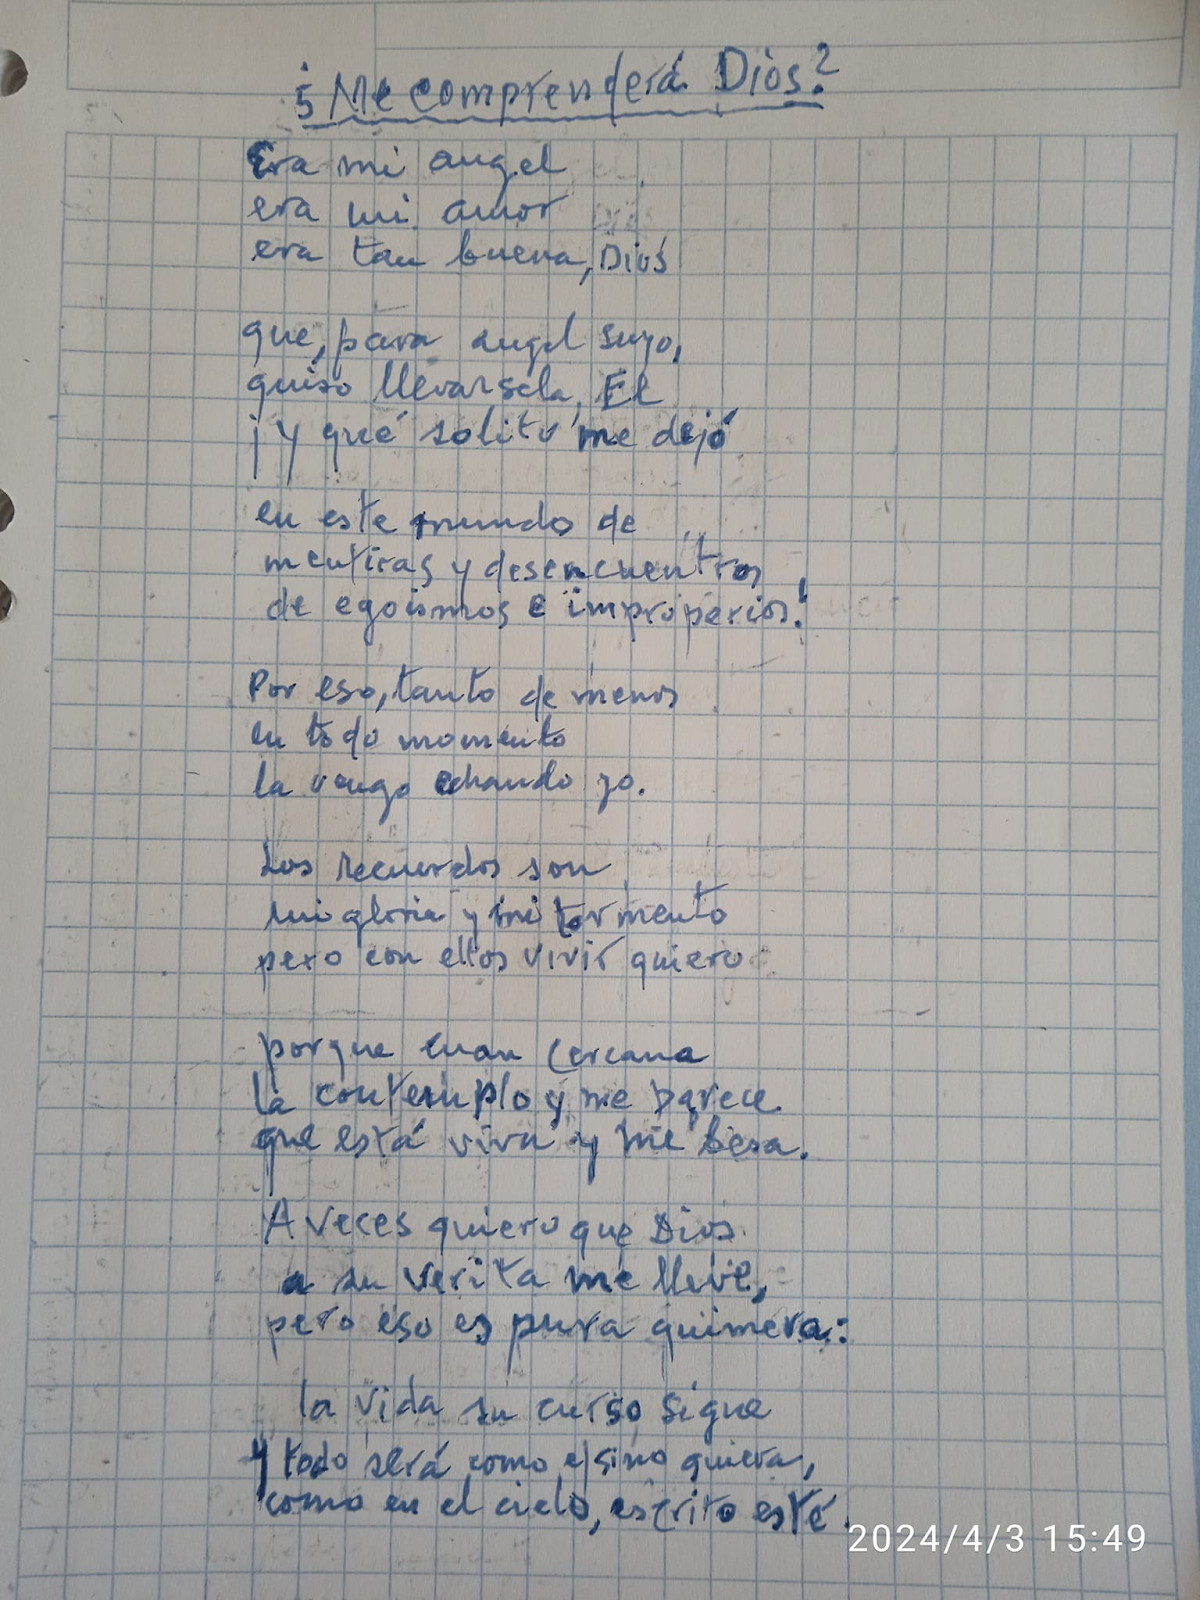 ¿Me comprenderá Dios?
Era mi angel
era mi amor
era tan buena, Dios
que, para angel suyo,
quiso llevarsela, El
¡y qué solito me dejó
en este mundo de
mentiras y desencuentros
de egoismos e improperios!
Por eso, tanto de menos
en todo momento
la vengo echando yo.
Los recuerdos son
mi gloria y mi tormento
pero con ellos vivir quiero
porque cuan cercana
la contemplo y me parece
que está viva y me besa.
A veces quiero que Dios
a su verita me lleve,
pero eso es pura quimera:
la vida su curso sigue
y todo será como el sino quiera,
como en el cielo, escrito esté.
2024/4/3 15:49